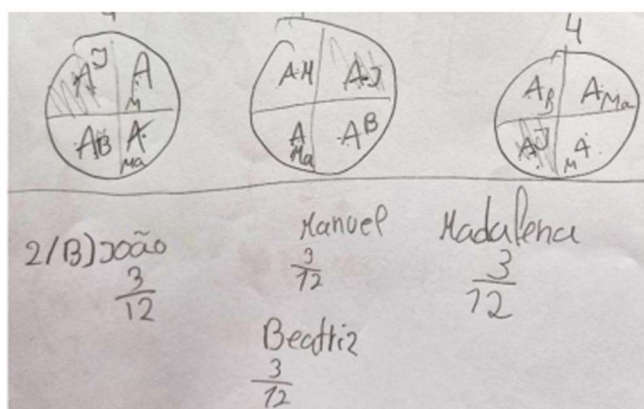 4
AJ A M
AB A Ma
AM AJ
A Ma AB
AB AMa
AJ M A
2/B) João
3/12
Manuel
3/12
Madalena
3/12
Beatriz
3/12